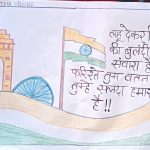 YADAV
लहू देकर
की बुलंदी
संवारा है
फरिश्ते तुम वतन
तुम्हे सजदा हमारा
है !!